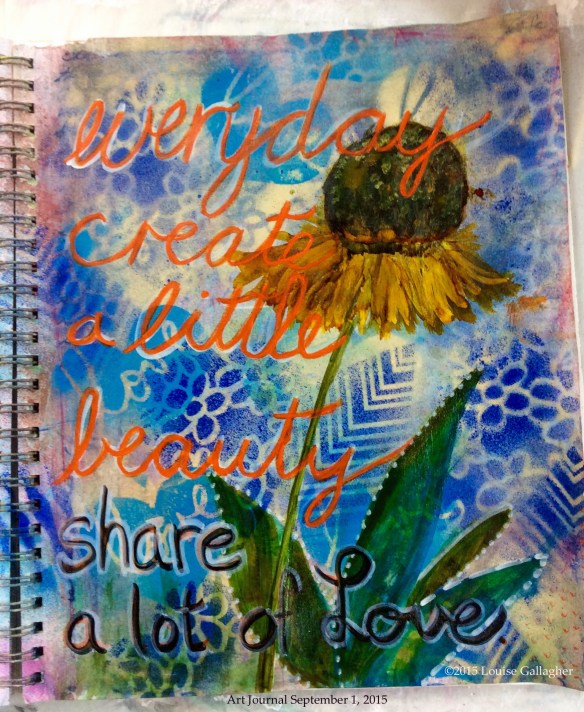 everyday
create
a little
beauty
share
a lot of Love.
©2015 Louise Gallagher
Art Journal September 1, 2015